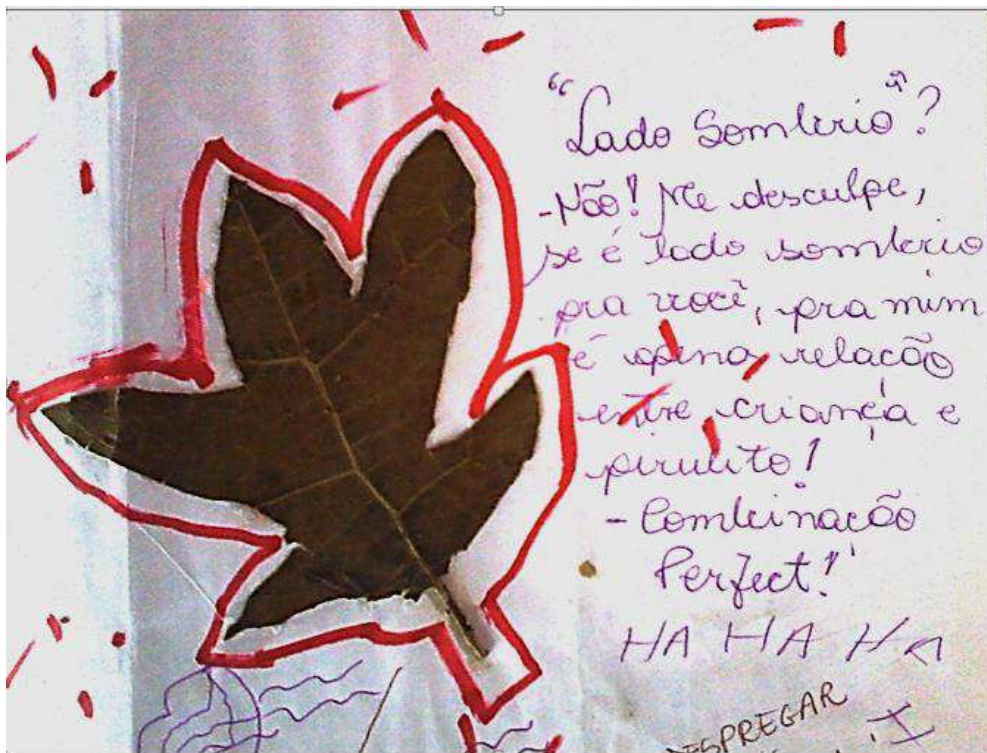 "Lado Sombrio"?
-Não! Me desculpe,
se é lado sombrio
pra você, pra mim
é apena relação
entre criança e
pirulito!
- Combinação
Perfect!
HA HA HA